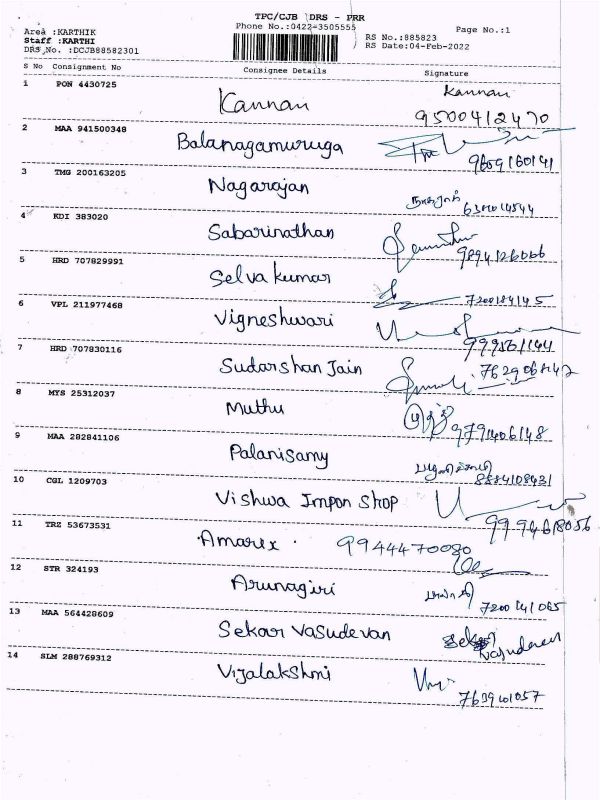 TPC/CJB DRS - PRR
Phone No.:0422-3505555
Page No.:1
Area :KARTHIK
Staff :KARTHI
DRS No. :DCJB88582301
RS No.:885823
RS Date:04-Feb-2022
S No Consignment No Consignee Details Signature
1 PON 4430725 Kannan Kannan
9500412470
2 MAA 941500348 Balanagamuruga
9659160141
3 TMG 200163205 Nagarajan நாகராஜ்
4 KDI 383020 Sabarinathan
5 HRD 707829991 Selvakumar
7200184145
6 VPL 211977468 Vigneshwari
7 HRD 707830116 Sudarshan Jain
8 MYS 25312037 Muthu
9791406148
9 MAA 282841106 Palanisamy
10 CGL 1209703 Vishwa Impon Shop
9994618056
11 TRZ 53673531 Amarex. 9944470080
12 STR 324193 Arunagiri
7200141065
13 MAA 564428609 Sekar Vasudevan Sekar
Vasudevan
14 SLM 288769312 Vijalakshmi